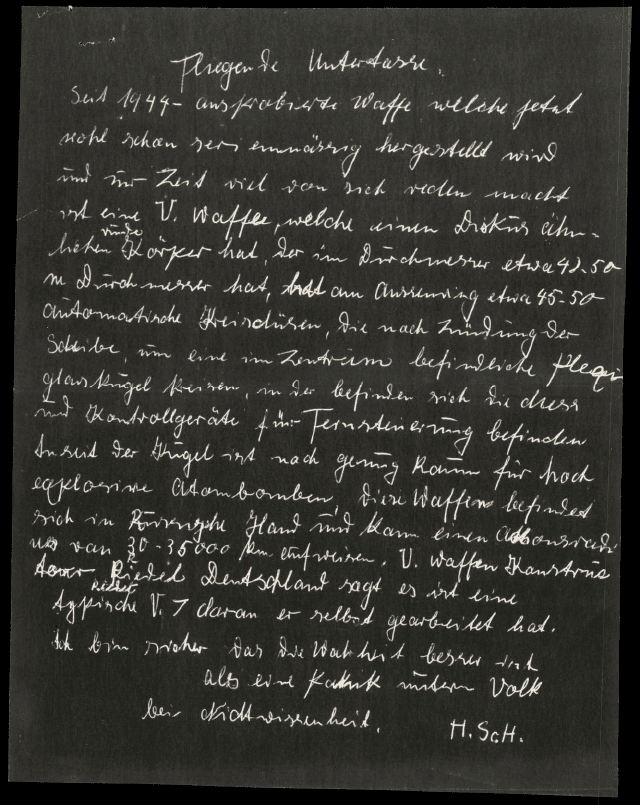 Fliegende Untertasse.
Seit 1944 – ausprobierte Waffe welche jetzt
wohl schon serienmässig hergestellt wird
und zur Zeit viel von sich reden macht
ist eine V. Waffe, welche einen Diskus ähn-
lichen runde Körper hat, der im Durchmesser etwa 42-50
m Durchmesser hat, hat am Aussenring etwa 45-50
automatische Kreisdüsen, die nach Zündung der
Scheibe, um eine im Zentrum befindliche Plexi
glaskugel kreisen, in der befinden sich die
und Kontrollgeräte für Fernsteuerung befinden
der Kugel ist nach genug Raum für hoch
explosive Atombomben, Diese Waffen befindet
sich in Hand und kann einen
von 30-35000 km aufweisen. V. Waffen Konstruk
teur Riedel Riedel Deutschland sagt es ist eine
typische V. 7 daran er selbst gearbeitet hat.
Ich bin sicher das die Wahrheit besser ist
als eine Panik unterm Volk
bei Nichtwissenheit. H. ScH.